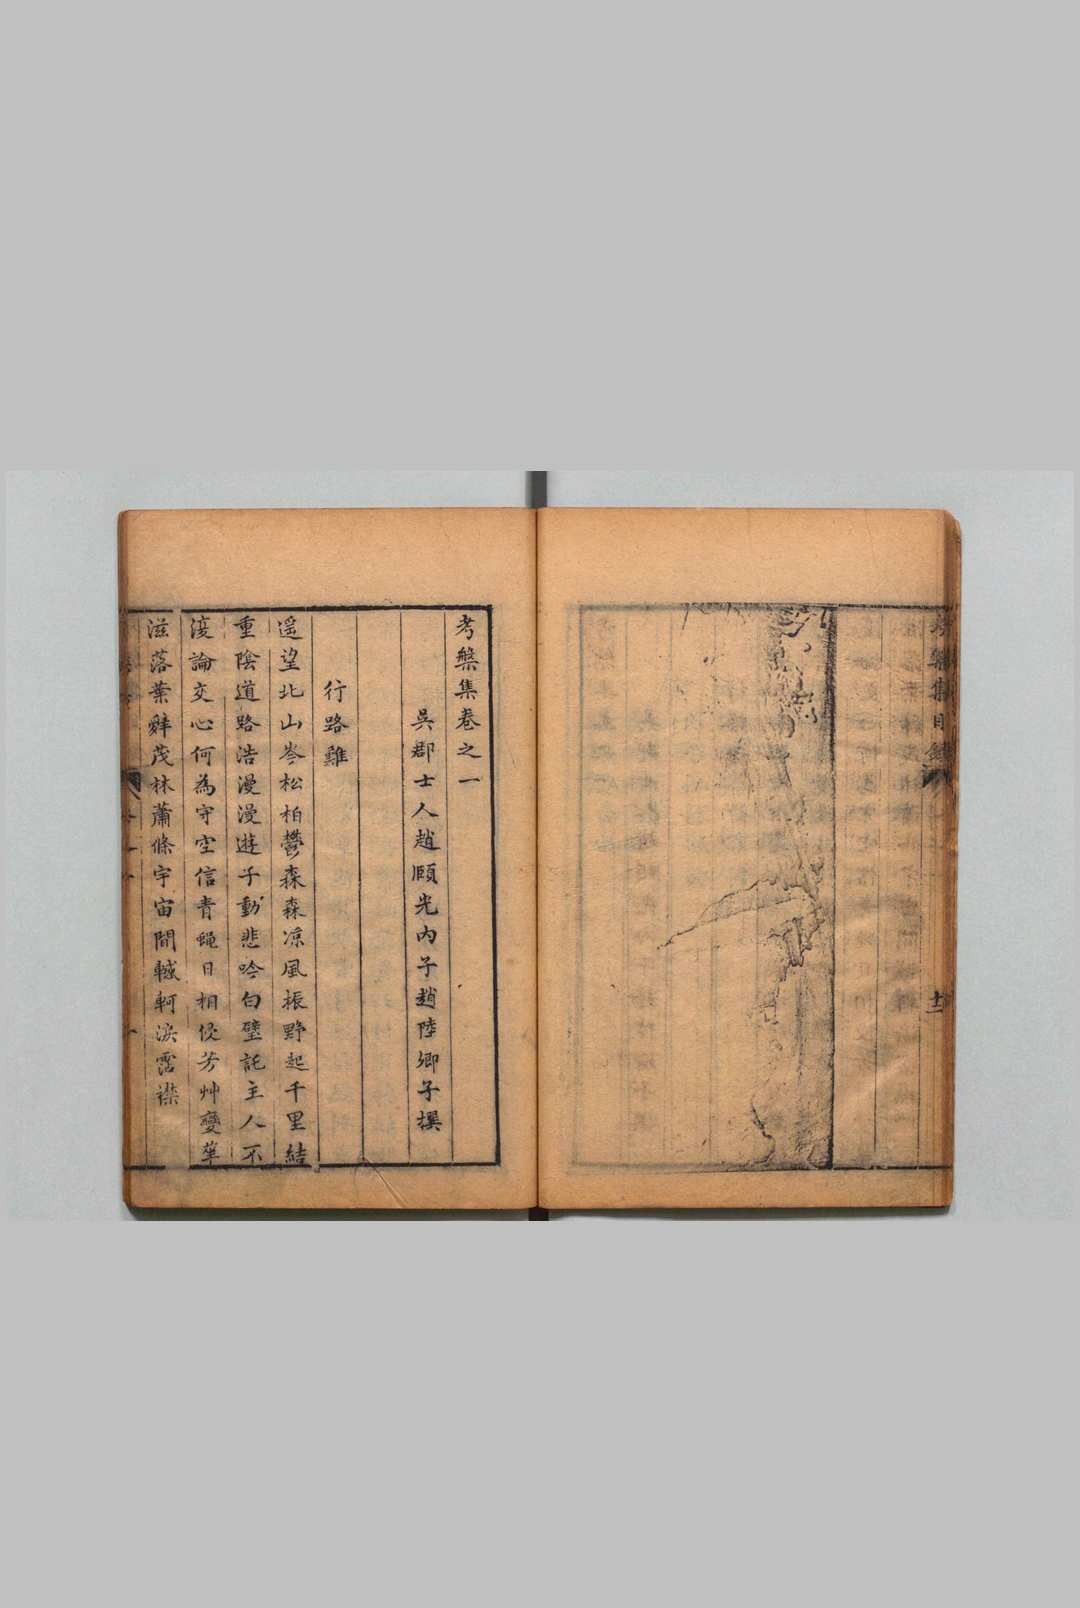 考槃集目錄
十二
考槃集卷之一
吳郡士人趙頤光內子趙陸卿子撰
行路難
遥望北山岑松柏鬱森森凉風振野起千里結
重陰道路浩漫漫遊子動悲吟白璧託主人不
復論交心何為守空信青蠅日相侵芳艸變華
滋落葉辭茂林蕭條宇宙間轗軻淚霑襟